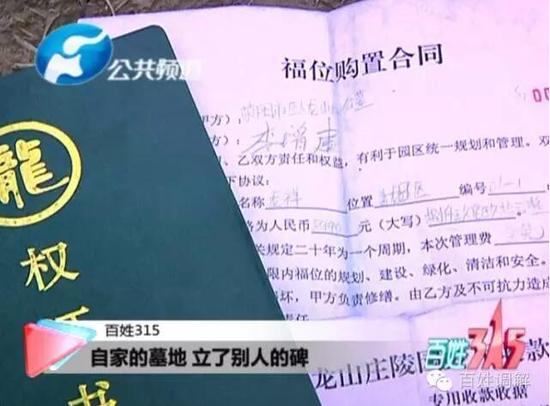 公共频道
福位购置合同
00
甲方）：
方）：
、乙双方责任和权益，有利于园区统一规划和管理。双
下协议：
名称 位置 区 编号
格为人民币 元（大写）
关规定二十年为一个周期，本次管理费
限内福位的规划、建设、绿化、清洁和安全。
坏，甲方负责修缮。由乙方及不可抗力造成
龍
权
证
书
龙山庄陵园 款
专用收款收据
百姓315
百姓315
自家的墓地 立了别人的碑
百姓调解